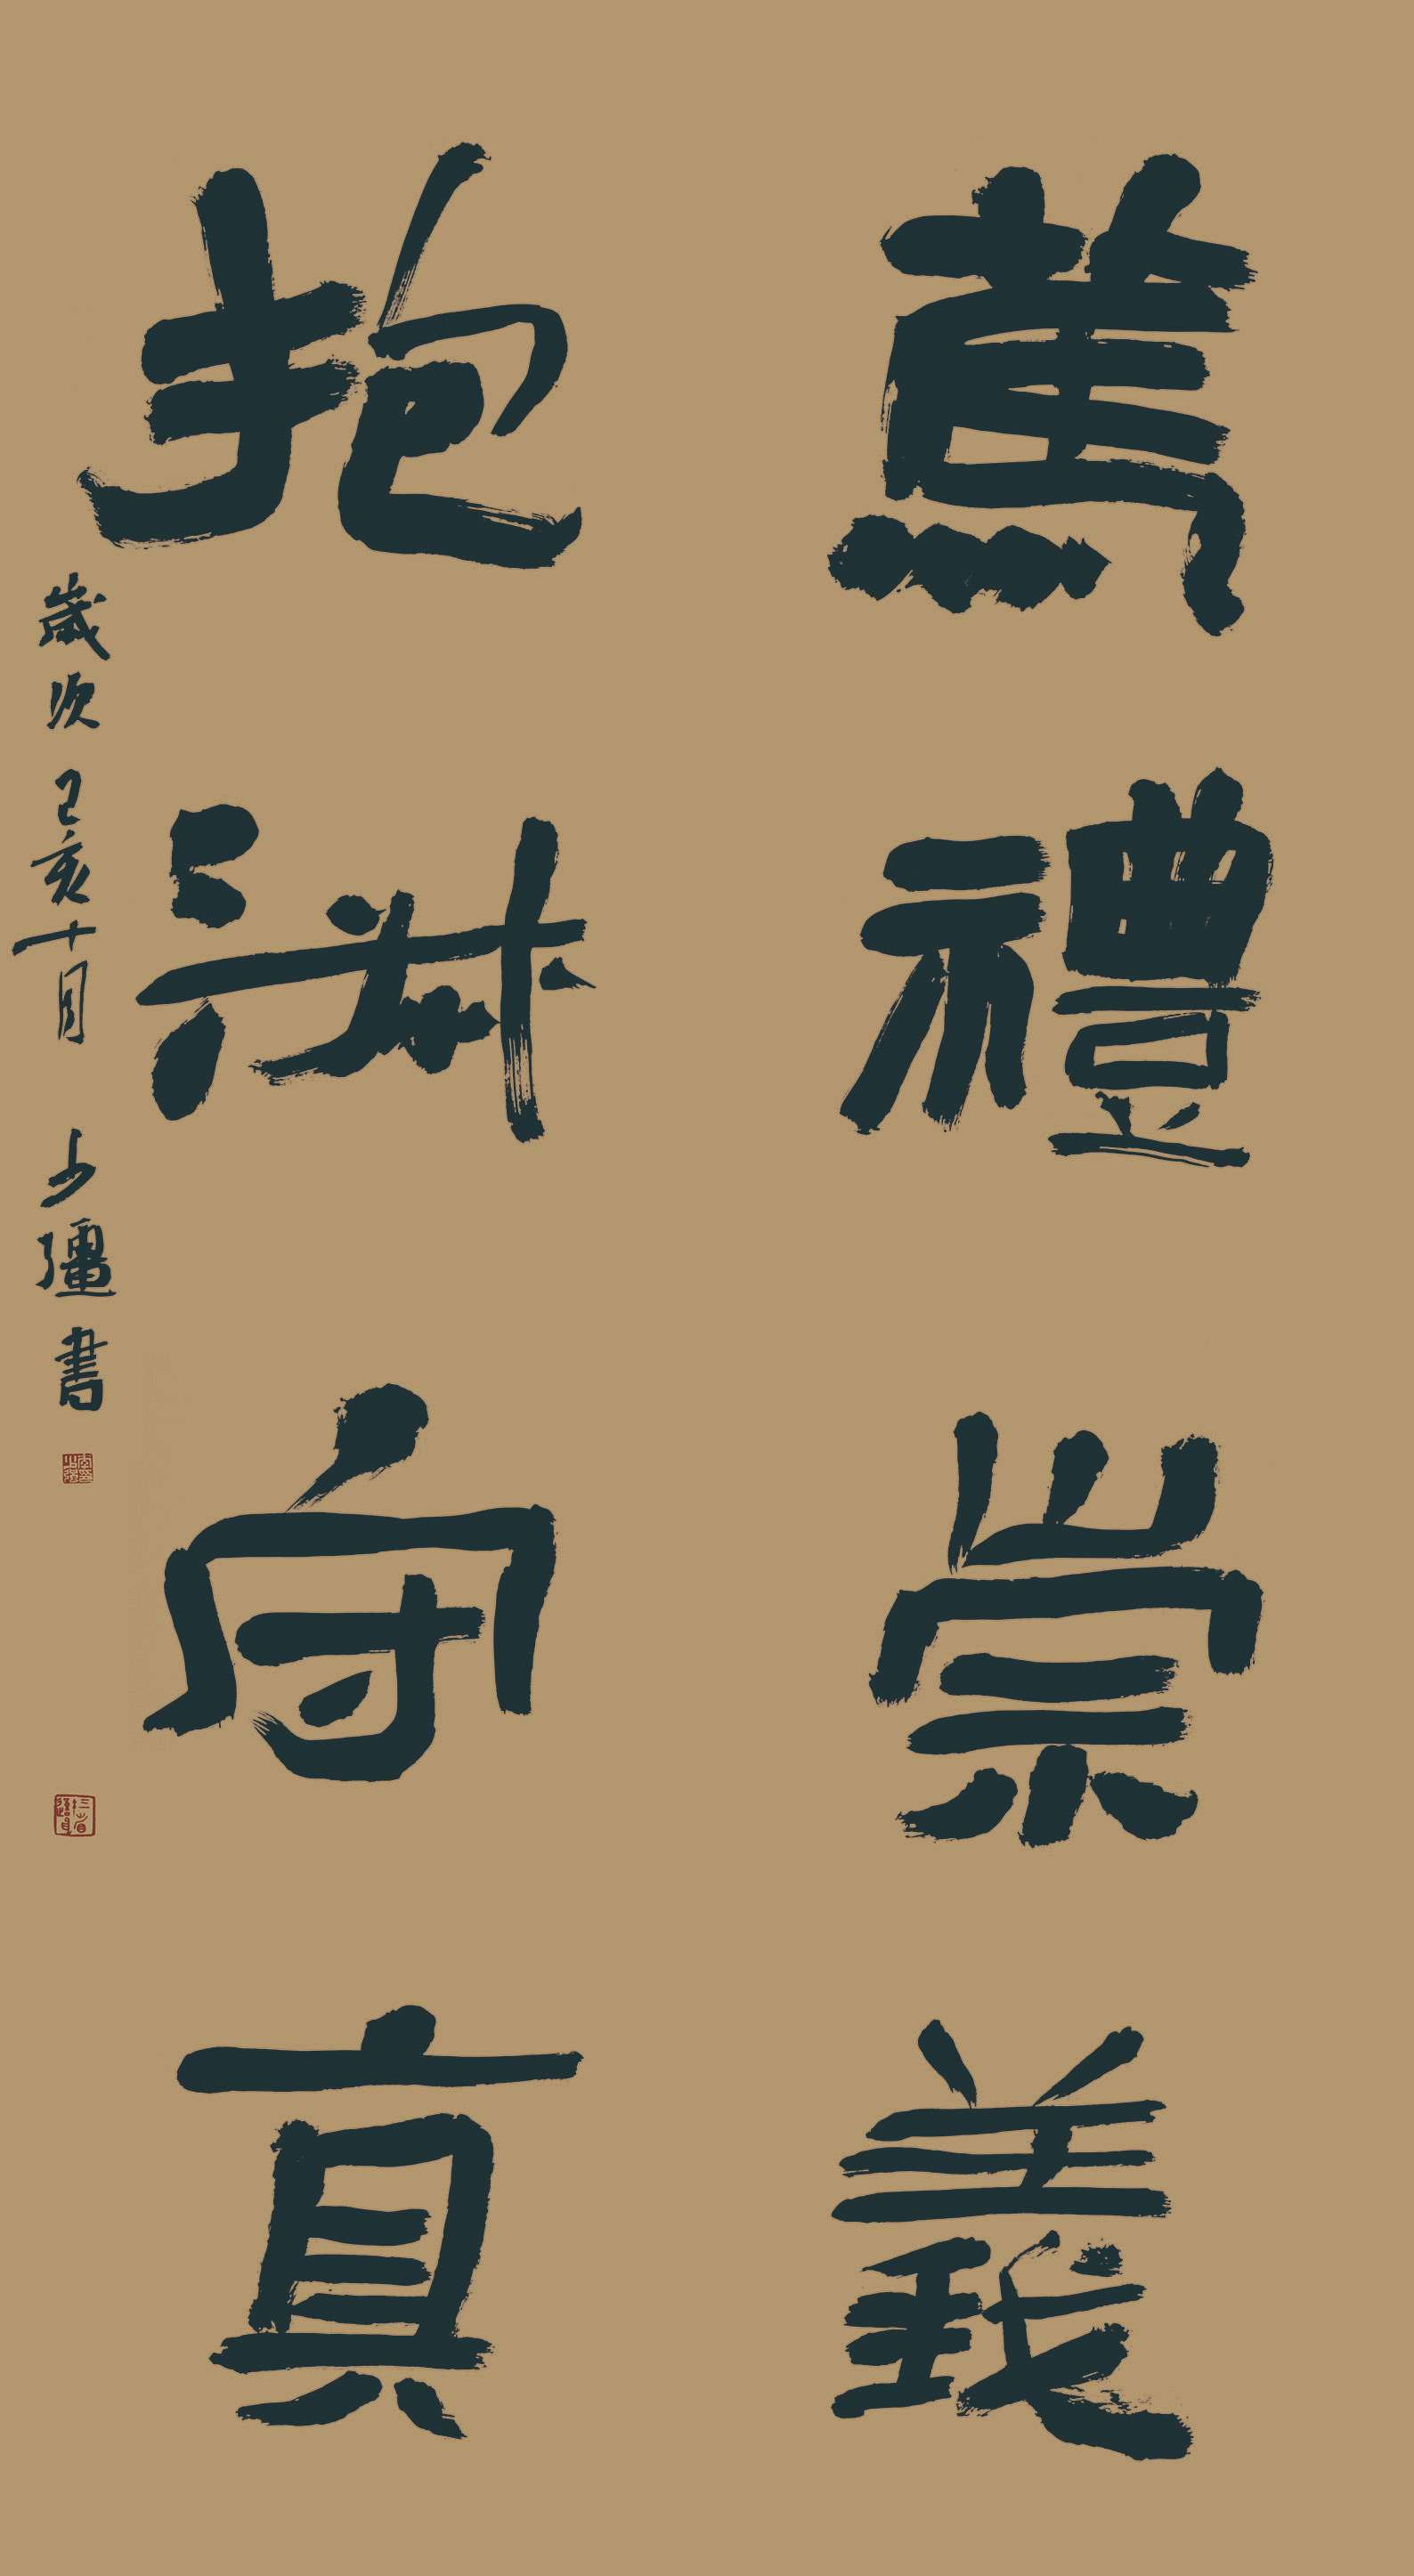 篤禮崇義
抱淑守真
歲次己亥十月 少彊書